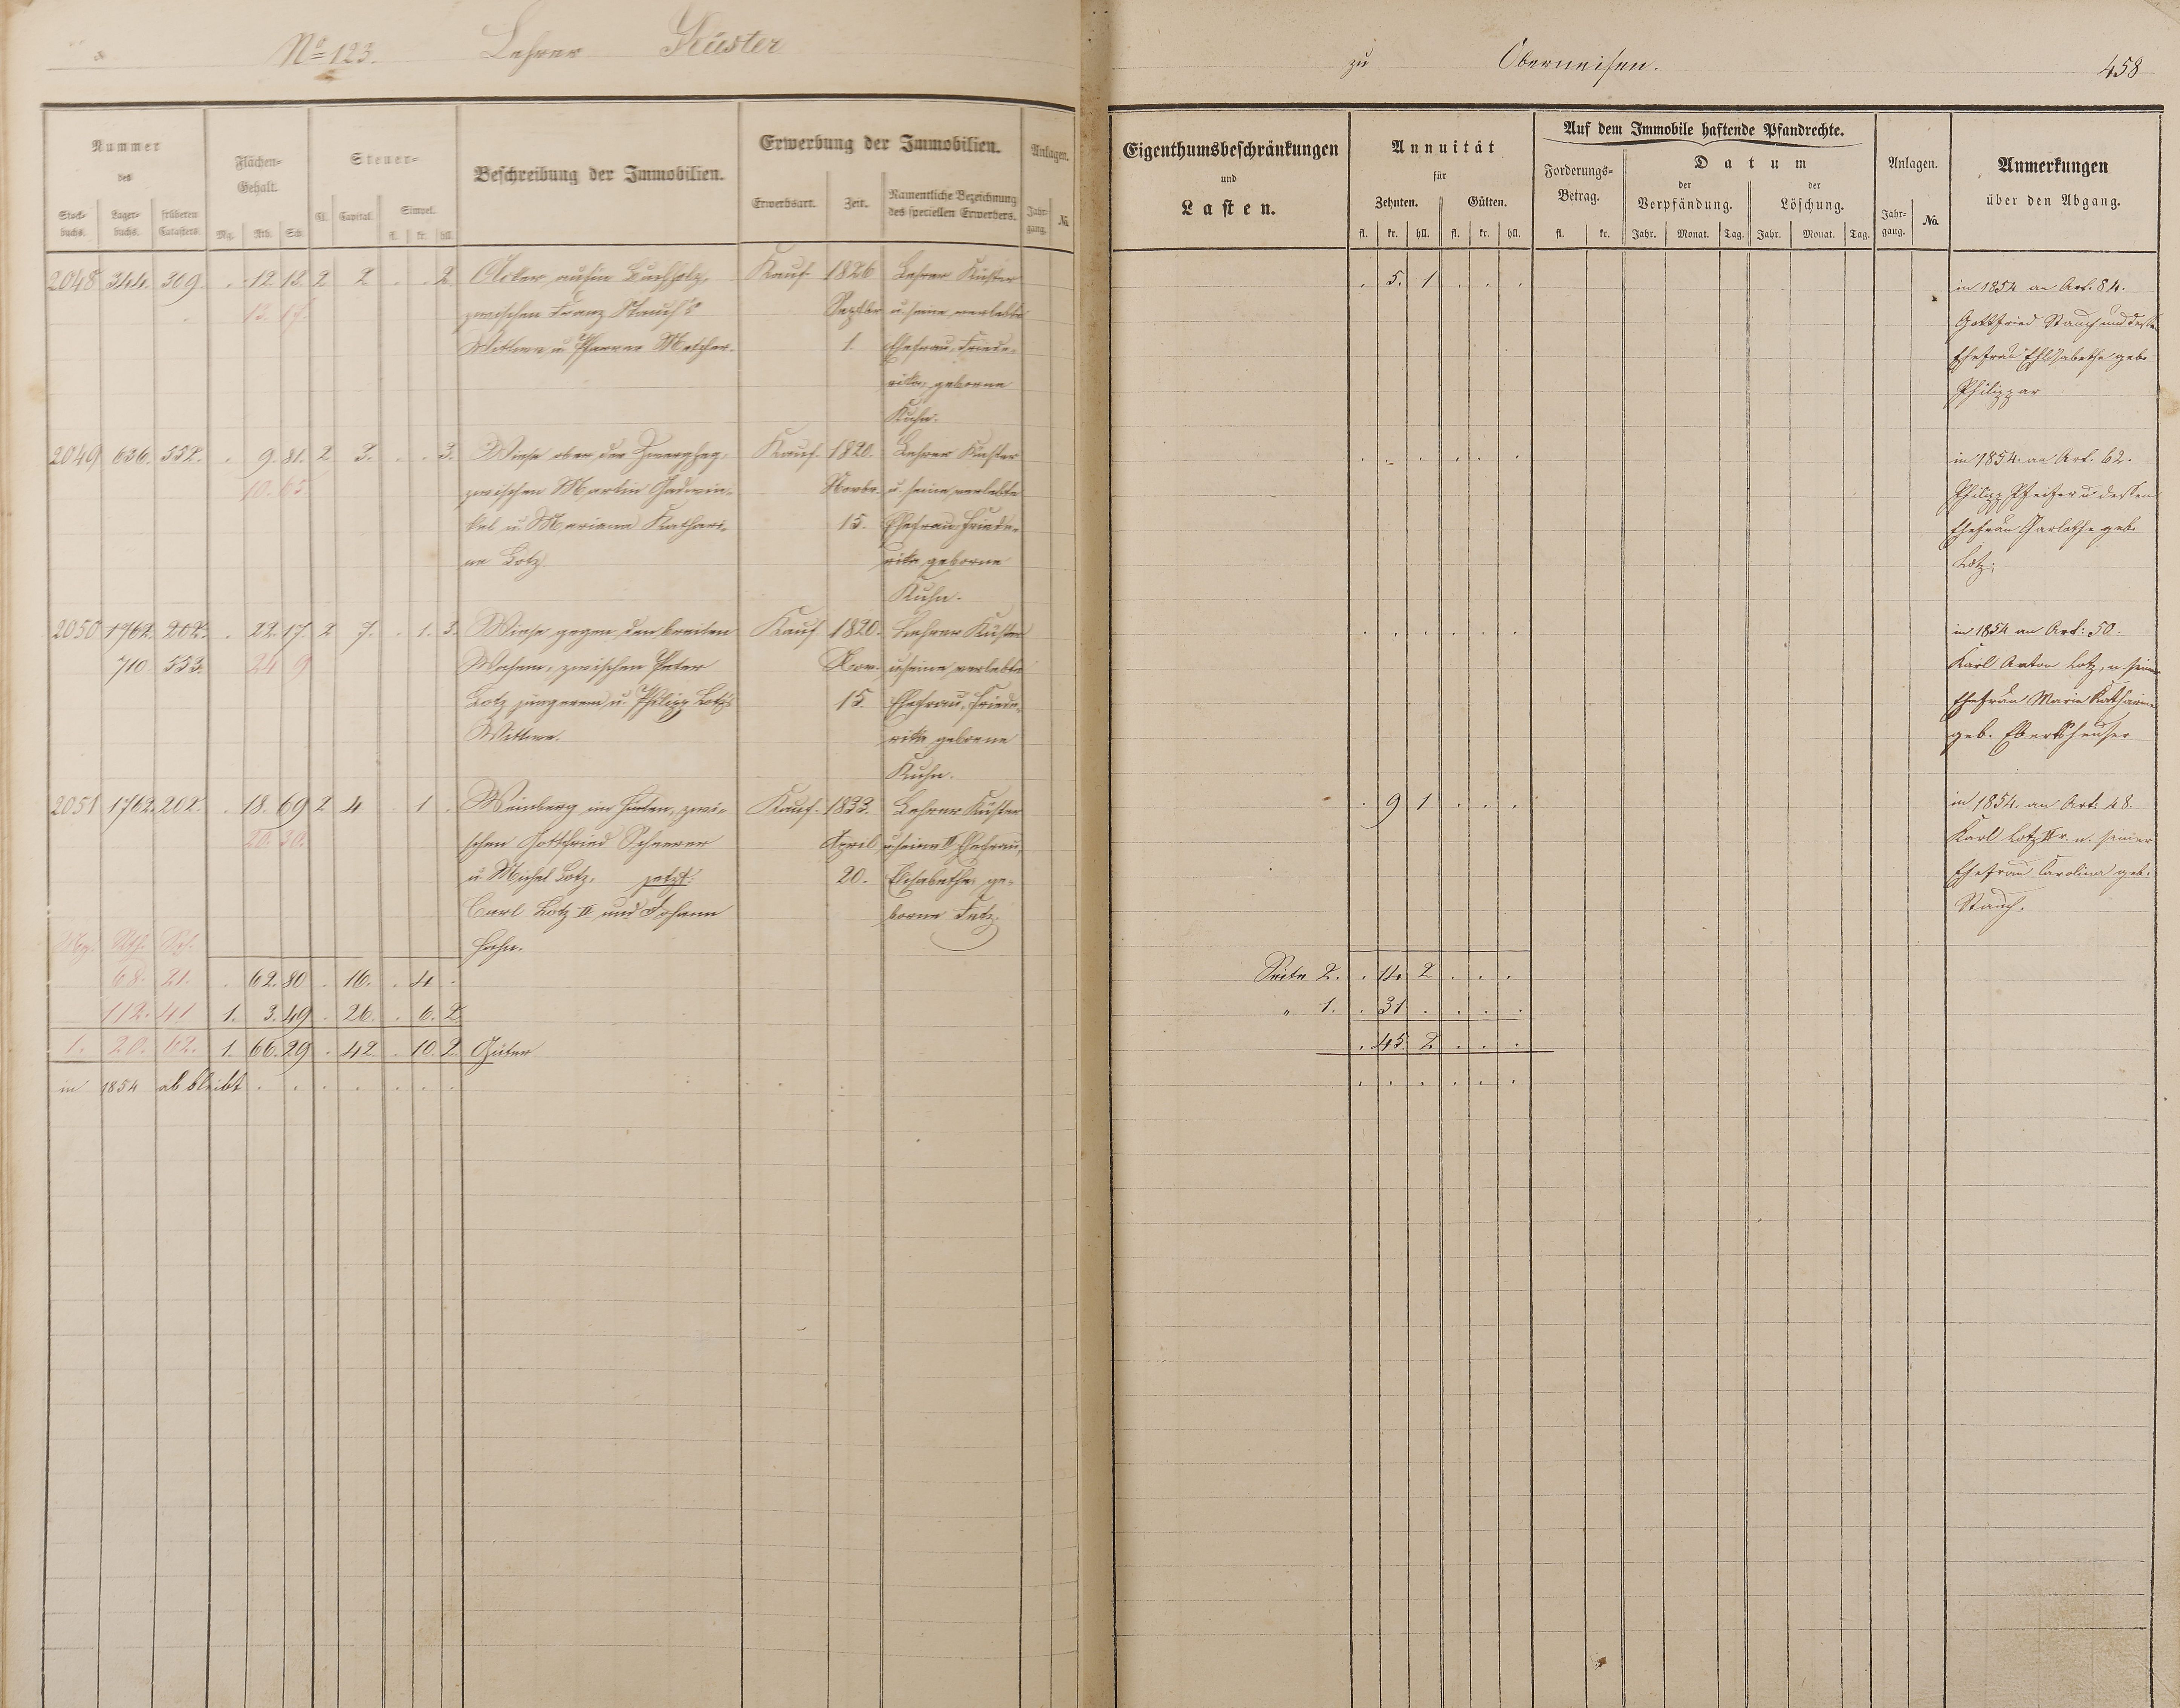 No 123. Lehrer Küster zu Oberneisen. 458
Nummer des
Stockbuchs. Lagerbuchs. früheren Catasters
Flächen-Gehalt.
Mg. Rth. Sch.
Steuer-
Cl. Capital. Simpel.
fl. kr. hll.
Beschreibung der Immobilien.
Erwerbung der Immobilien.
Erwerbsart. Zeit. Namentliche Bezeichnung des speciellen Erwerbers.
Anlagen.
Jahrgang. No.
Eigenthumsbeschränkungen
und
Lasten.
Annuität
für
Zehnten. Gülten.
fl. kr. hll. fl. kr. hll.
Auf dem Immobile haftende Pfandrechte.
Forderungs-Betrag.
fl. kr.
Datum
der Verpfändung. der Löschung.
Jahr. Monat. Tag. Jahr. Monat. Tag.
Anlagen.
Jahr-gang. No.
Anmerkungen
über den Abgang.
2048 344. 309. . 12. 12. 2 2 . . 2. Acker aufm Buchholz, Kauf 1826 Lehrer Küster . 5. 1 . . . in 1854 an Art. 84.
13. 17. zwischen Franz Stauch's Septbr u. seine verlebte Gottfried Stauch und dessen
Wittwe u. Pfarrer Metzler. 1. Ehefrau, Friede- Ehefrau Elisabetha geb.
rika, geborne Philippar
Kuhn.
2049 636. 552. . 9. 81. 2 3. . . 3. Wiese ober der Kauf. 1820. Lehrer Küster . . . . . . in 1854. an Art. 62.
10. 65 zwischen Martin Novbr. u. seine verlebte Philipp Pfeifer u. dessen
kel u. Mariana Kathari- 15. Ehefrau Friede- Ehefrau Charlothe geb.
na Lotz. rika geborne Lotz.
Kuhn.
2050 1762. 202. . 22. 17. 2 7. . 1. 3. Wiese gegen den breiten Kauf 1820. Lehrer Küster . . . . . . in 1854 an Art: 50.
710. 553. 24 9 Wasem, zwischen Peter Nov. u. seine verlebte Karl Anton Lotz, u. seiner
Lotz jüngerem u. Philipp Lotz's 15. Ehefrau, Friede- Ehefrau Marie Katharine
Wittwe. rika geborne geb.
Kuhn.
2051 1762. 202. . 18. 69 2 4 . 1 . Weinberg im zwi- Kauf. 1833. Lehrer Küster . 9 1 . . . in 1854. an Art. 48.
20. 30. schen Gottfried Scheerer April u. seine II Ehefrau, Karl Lotz IIr. u. seiner
u. Michel Lotz, jetzt: 20. Elisabetha, ge- Ehefrau Carolina geb.
Carl Lotz II und Johann borne Fatz. Stauch.
Hahn.
Mg. Rth. Sch.
68. 21. . 62. 80 . 16. . 4 . Seite 2. . 14. 2 . . .
112. 41 1. 3. 49 . 26. . 6. 2 " 1. . 31 . . . .
1. 20. 62. 1. 66. 29 . 42. . 10. 2 Güter . 45. 2 . . .
in 1854 ab bleibt . . . . . . . . . . . . .